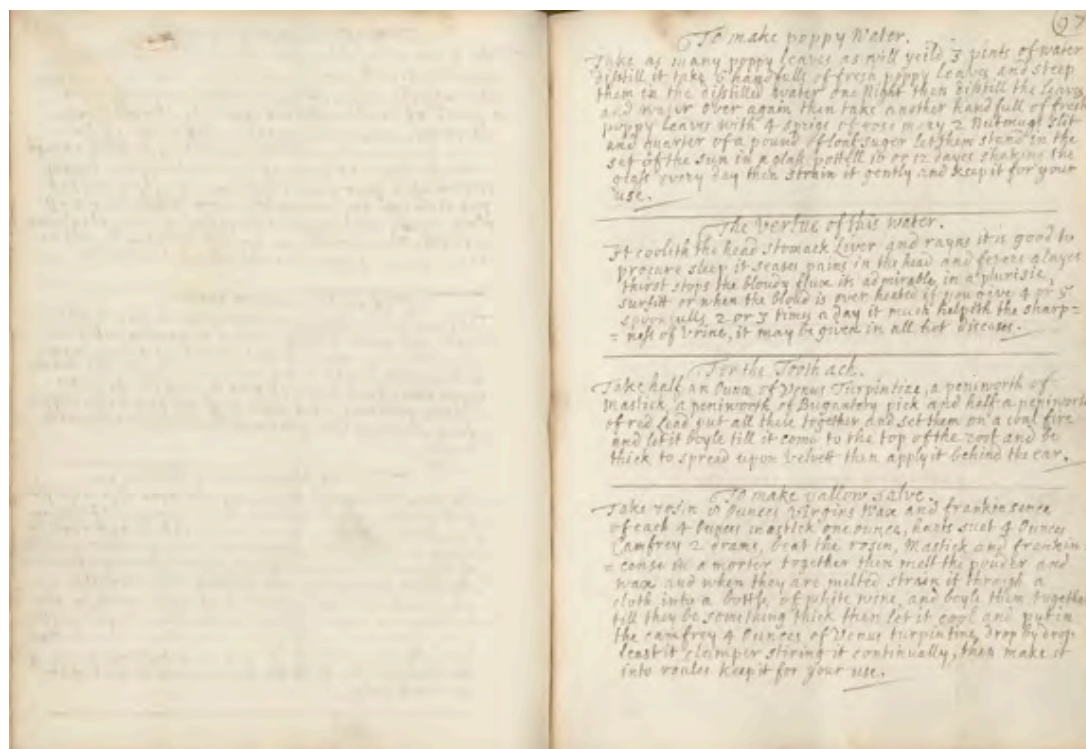 97
To make poppy Water.
Take as many poppy leaves as will yeild 3 pints of water
distill it take 5 handfulls of fresh poppy leaves and steep
them in the distilled water one Night then distill the leaves
and water over again then take another handfull of fresh
poppy leaves with 4 sprigs of rose mary 2 Nutmugs slit
and quarter of a pound of loaf suger let them stand in the
set of the sun in a glass 10 or 12 dayes shaking the
glass every day then strain it gently and keep it for your
use.
The Vertue of this water.
It coolith the head stomack Liver and rayns it is good to
procure sleep it seases pains in the head and alayes
thirst stops the bloudy flux its admirable in a plurisie,
surfitt or when the bloud is over heated if you give 4 or 5
spoonfulls 2 or 3 times a day it much helpith the sharp=
=ness of Vrine, it may be given in all hot diseases.
For the Tooth ach.
Take half an Ounce of Venus Turpintine, a peniworth of
Mastick, a peniworth of pick and half a peniworth
of red Lead put all these together and set them on a coal fire
and let it boyle till it come to the top of the and be
thick to spread upon Velvett then apply it behind the ear.
To make yallow salve.
Take rosin Ounces Virgins Wax and frankinsence
of each 4 Ounces mastick one ounce, harts suet 4 Ounces
Camfrey 2 drams, beat the rosin, Mastick and frankin=
=cense in a morter together then melt the pouder and
wax and when they are melted strain it through a
cloth into a bottle of white wine, and boyle them together
till they be something thick then let it cool and put in
the camfrey 4 Ounces of Venus turpintine, drop by drop
least it clumper stiring it continually, then make it
into roules keep it for your use.